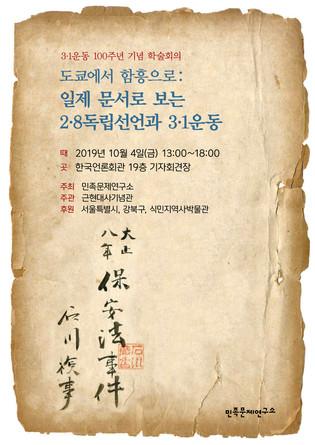 3·1운동 100주년 기념 학술회의
도쿄에서 함흥으로:
일제 문서로 보는
2·8독립선언과 3·1운동
때 2019년 10월 4일(금) 13:00~18:00
곳 한국언론회관 19층 기자회견장
주최 민족문제연구소
주관 근현대사기념관
후원 서울특별시, 강북구, 식민지역사박물관
大正
八年
保安法事件
石川検事
민족문제연구소